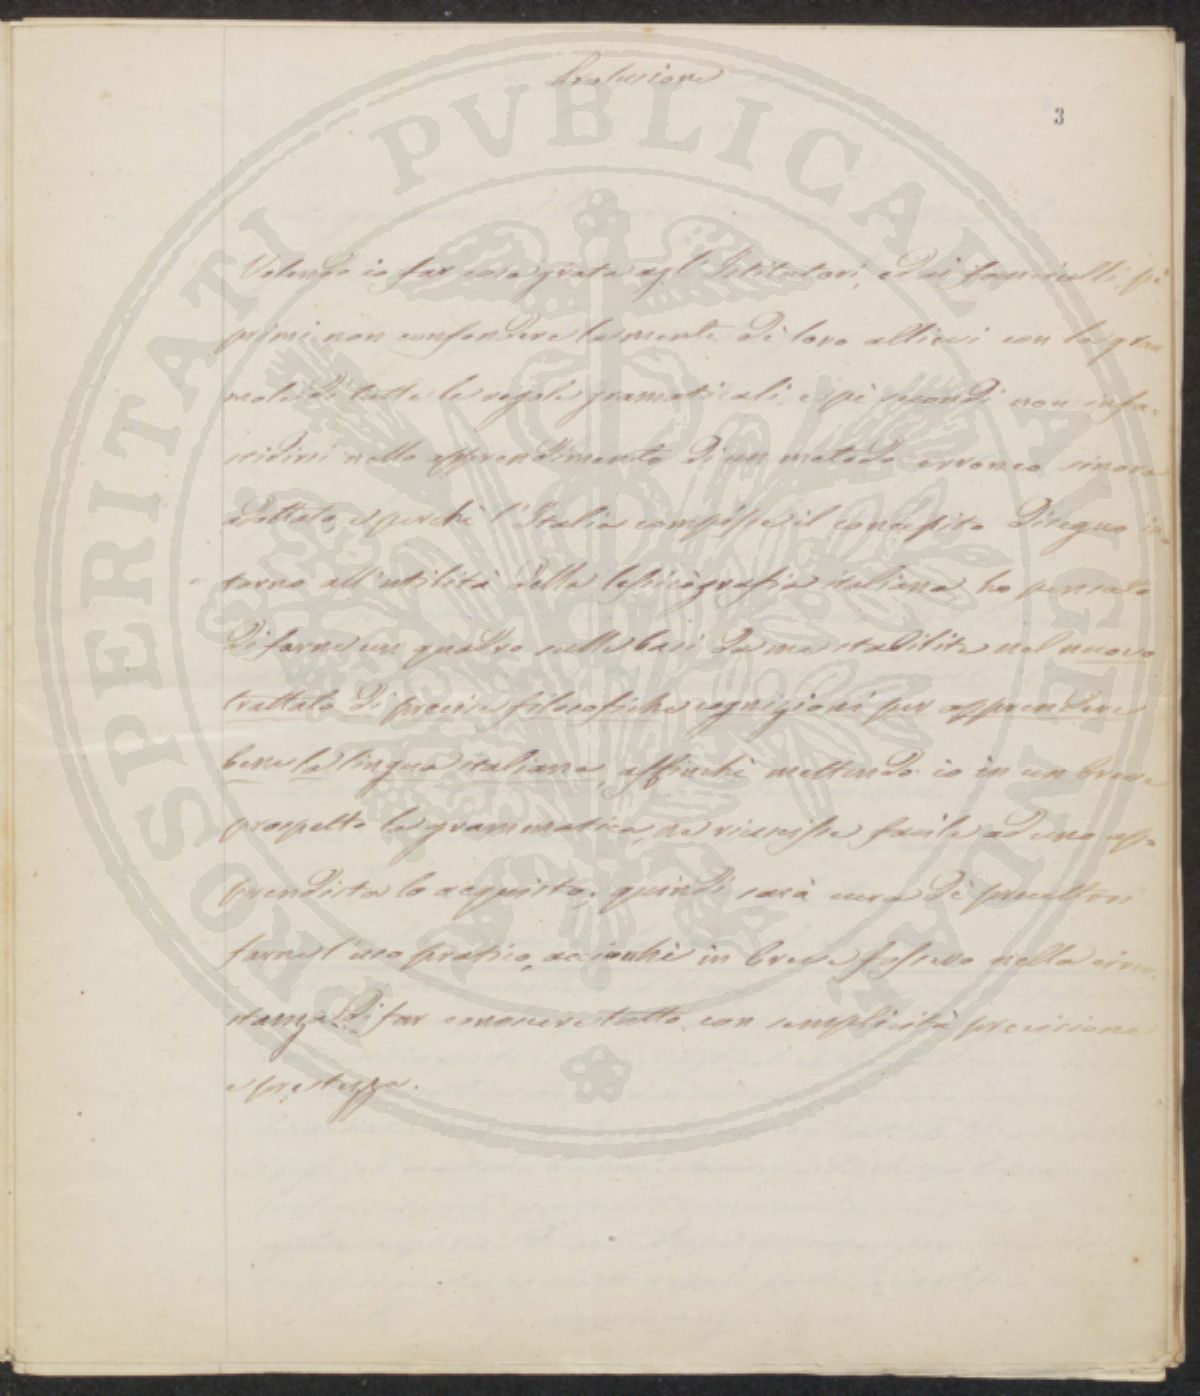 Prolusione
3
Volendo io far cosa grata agl' Istitutori, ed ai fanciulli, pè
primi non confondere la mente dè loro allievi con la gran
mole di tutte le regole gramaticali, e pè secondi non infa-
stidirsi nello apprendimento di un metodo erroneo sinora
adottato, e perchè l'Italia compisse il concepito disegno in-
torno all'utilità della lessicografia italiana ho pensato
di farne un quadro sulle basi da me stabilite nel nuovo
trattato di precise filosofiche cognizioni per apprendere
bene la lingua italiana, affinchè mettendo io in un breve
prospetto la grammatica, ne riuscisse facile ad uno ap-
prendista lo acquisto, quindi sarà cura dè precettori
farne l'uso pratico, acciochè in breve fossero nella circo-
stanza di far conoscere tutto con semplicità precisione
e prestezza.
PROSPERITATI PVBLICAE AVGENDAE